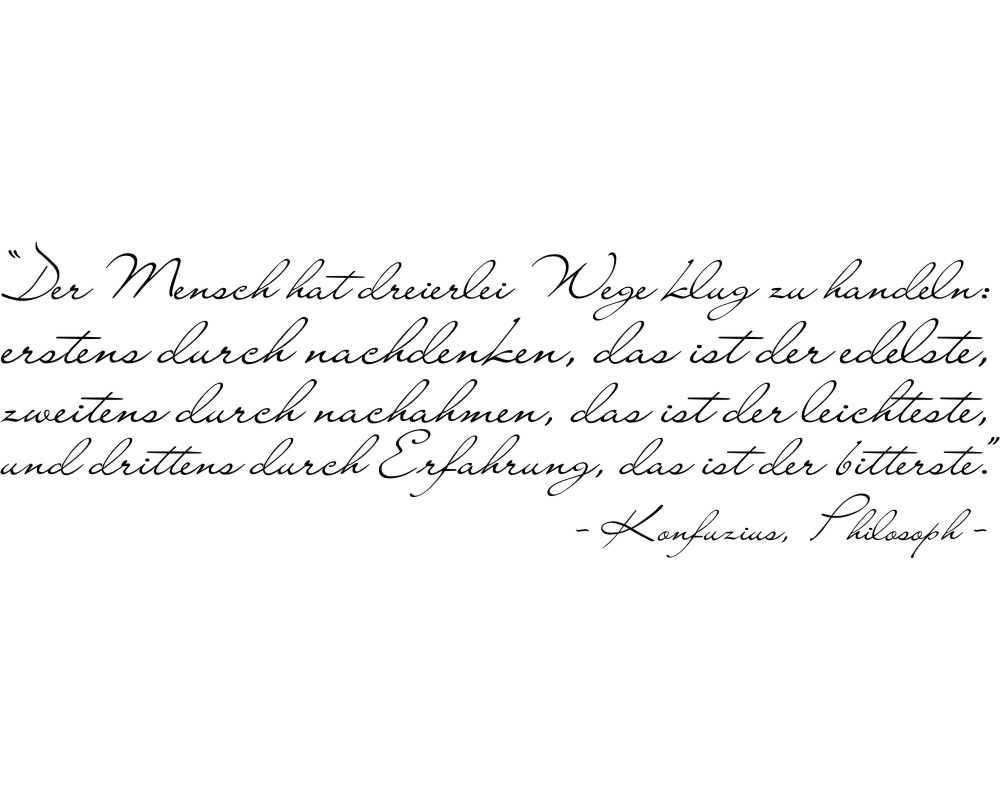 “Der Mensch hat dreierlei Wege klug zu handeln:
erstens durch nachdenken, das ist der edelste,
zweitens durch nachahmen, das ist der leichteste,
und drittens durch Erfahrung, das ist der bitterste.”
- Konfuzius, Philosoph -